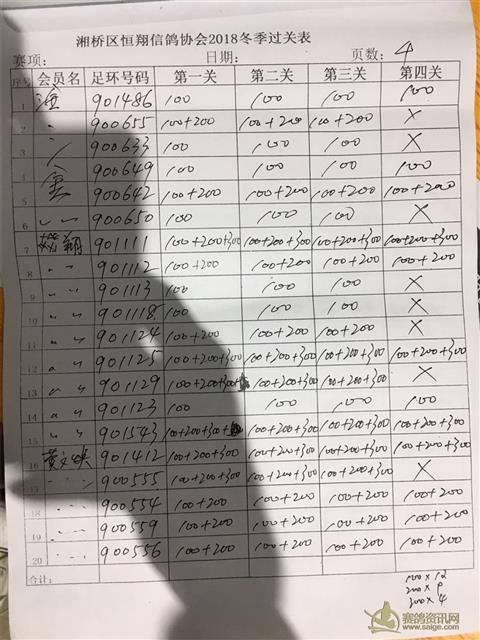 湘桥区恒翔信鸽协会2018冬季过关表
赛项： 日期： 页数：4
序号 会员名 足环号码 第一关 第二关 第三关 第四关
1 901486 100 100 100 100
2 " 900655 100+200 100+200 100+200 X
3 900633 100 100 100 X
4 900649 100 100 100 100
5 900642 100+200 100+200 100+200 100+200
6 " " 900650 100 100 100 X
7 翔 901111 100+200+300 100+200+300 100+200+300 100+200+300
8 " " 901112 100+200 100+200 100+200 100+200
9 " " 901113 100 100 100 X
10 " " 901118 100 100 100 X
11 " " 901124 100+200 100+200 100+200 X
12 " " 901125 100+200+300 100+200+300 100+200+300 100+200+300
13 " " 901129 100+200+300 100+200+300 100+200+300 X
14 " " 901123 100 100 100 100
15 " " 901543 100+200+300 100+200+300 100+200+300 100+200+300
16 黄文 901412 100+200+300 100+200+300 100+200+300 100+200+300
17 " " 900555 100+200+300 100+200+300 100+200+300 X
18 " " 900554 100+200 100+200 100+200 100+200
19 " " 900559 100+200 100+200 100+200 100+200
20 " " 900556 100+200 100+200 100+200 100+200
合计：
100×12
200×9
300×4
赛鸽资讯网
www.saige.com